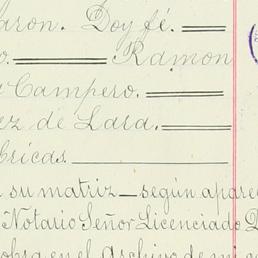 aron. Doy fé.
o. Ramon
Campero.
ez de Lara.
bricas
su matriz — según apare
Notario Señor Licenciado
obra en el Archivo de mi